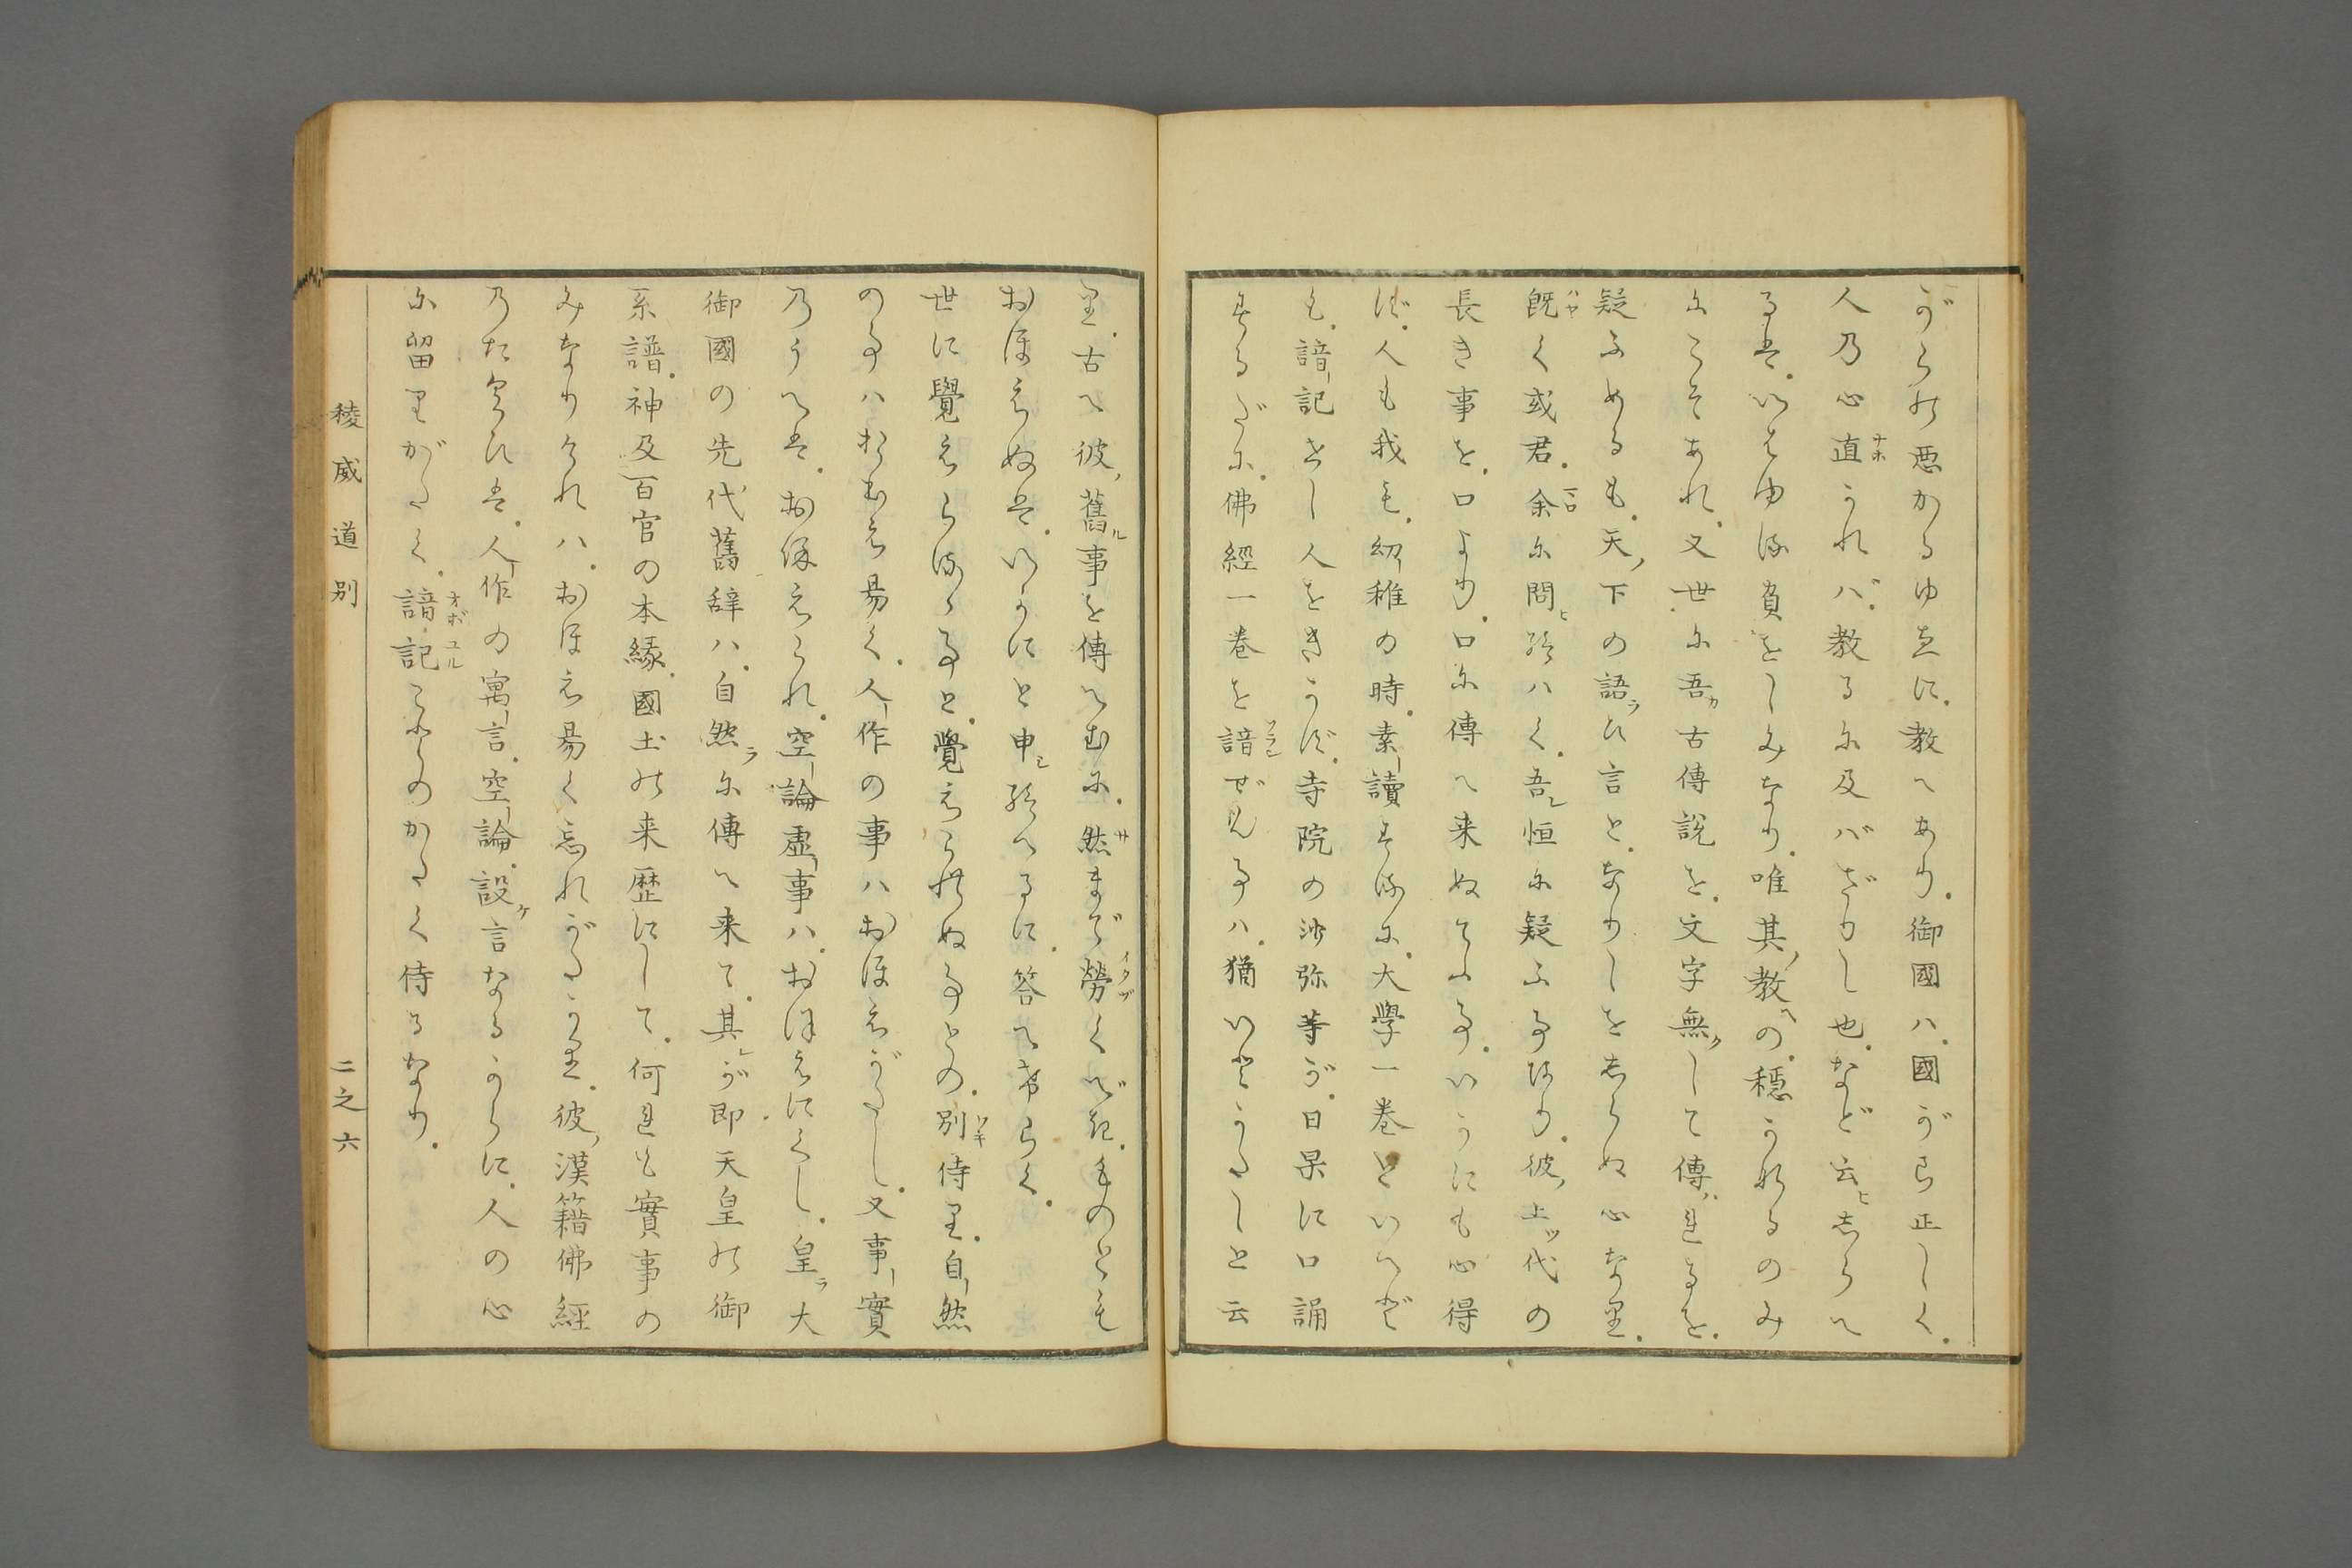 がらの悪かるゆゑに。教へあり。御國ハ。國がら正しく。
人乃心直かれバ。教るに及バざりし也。など云ひしらへ
るは。いはゆる負をしみなり。唯其教への。穏かなるのみ
にこそあれ。又世に吾古傳説を。文字無くして傳はれるを。
疑ふめるも。天下の語らひ言と。なりしをしらぬ心なり。
既く或君。余に問ひ給ハく。吾し恒に疑ふ事あり。彼上ツ代の
長き事を。口より。口に傳へ来ぬてふ事。いかにも心得
ず。人も我も。幼稚の時。素讀するに。大學一巻といへど
も。諳記せし人をきかず。寺院の沙弥等が。日杲に口誦
するだに。佛經一巻を諳ぜむ事ハ。猶いとかたしと云
り。古へ彼舊る事を傳へむに。然まで勞くべき。ものとも
おぼえぬは。いかにと申し給へるに。答へけらく。
世に覺えらるゝ事と。覺えられぬ事との。別侍り。自然
の事ハおもむき易く。人作の事ハおぼえがたし。又事實
乃うへは。おぼえられ。空論虚事ハ。おぼえにくし。皇大
御國の先代舊辞ハ。自然らに傳へ来て。其しが即天皇の御
系譜。神及百官の本縁。國土の来歴にして。何れも實事の
みなりけれハ。おぼえ易く忘れがたかり。彼漢籍佛經
乃たぐひは。人作の寓言。空論。設け言なるからに。人の心
に留りがたく。諳記これのかたく侍るなり。
稜威道別
二之六